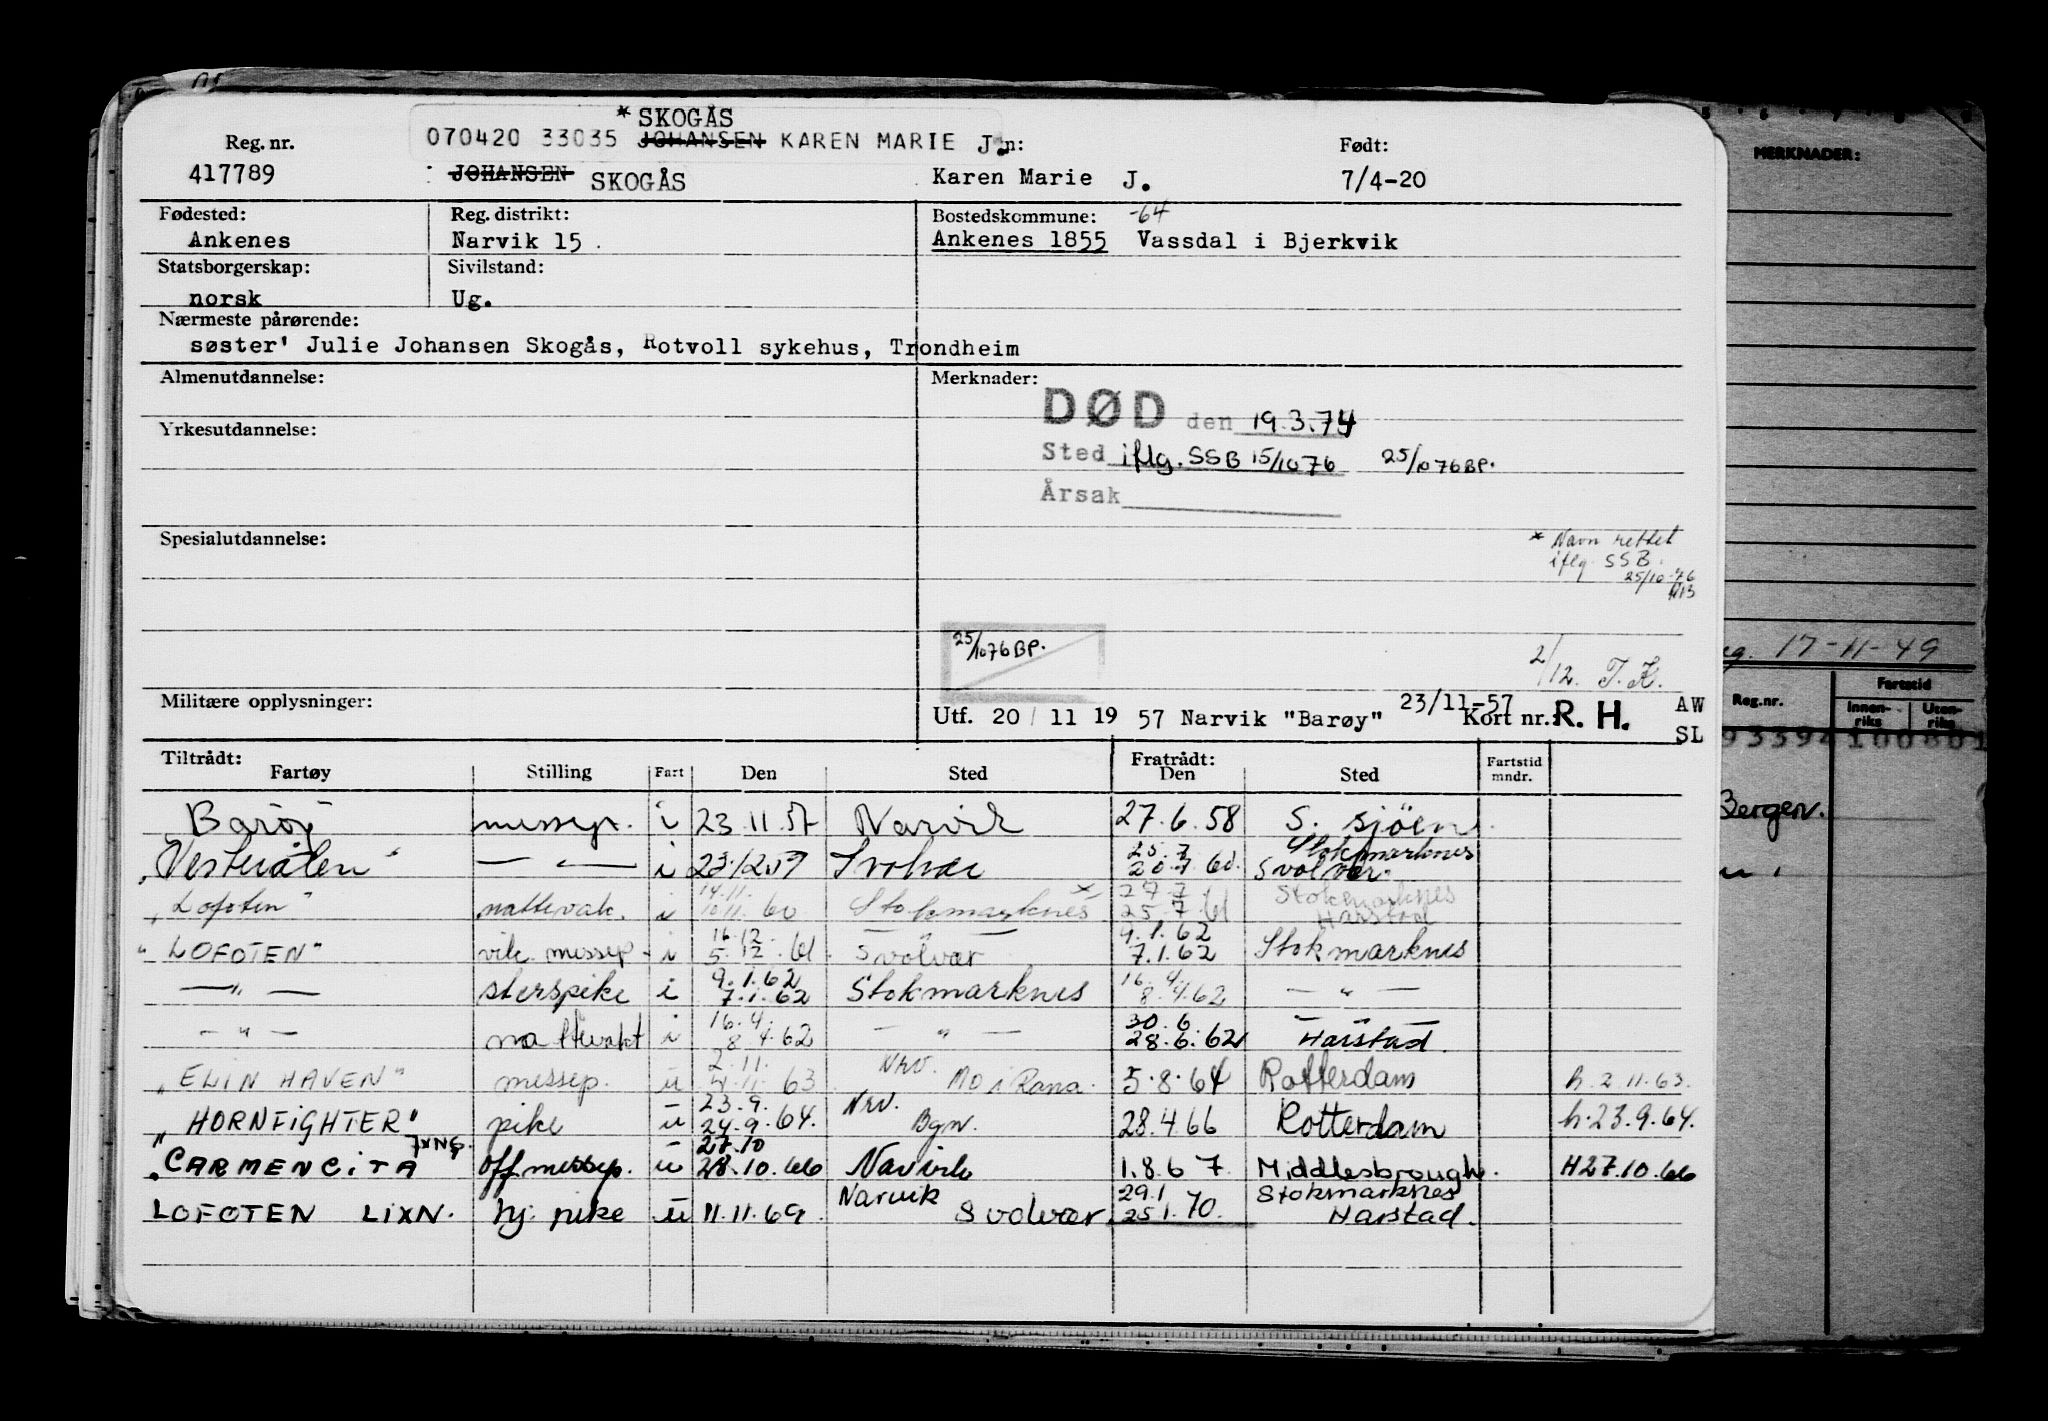 * SKOGÅS
070420 33035 JOHANSEN KAREN MARIE J. n:
Reg. nr. Født:
417789 JOHANSEN SKOGÅS Karen Marie J. 7/4-20
Fødested: Reg. distrikt: Bostedskommune: -64
Ankenes Narvik 15 . Ankenes 1855 Vassdal i Bjerkvik
Statsborgerskap: Sivilstand:
norsk Ug.
Nærmeste pårørende:
søster' Julie Johansen Skogås, Rotvoll sykehus, Trondheim
Almenutdannelse: Merknader:
DØD den 19.3.74
Yrkesutdannelse:
Sted iflg. SSB 15/10 76 25/10 76 BP.
Årsak
Spesialutdannelse:
* Navn rettet
iflg. SSB.
25/10-76
25/10 76 BP.
2/12. T.K.
Militære opplysninger:
Utf. 20 / 11 19 57 Narvik "Barøy" 23/11-57 Kort nr. R. H. AW
SL
Tiltrådt: Fratrådt:
Fartøy Stilling Fart Den Sted Den Sted Fartstid mndr.
Barøy messep. i 23.11.57 Narvik 27.6.58 S. sjöen.
25.7 Stokmarknes
"Vesterålen" — " — i 23.12.59 Svolvær 20.7.60. Svolvær.
14.11. x 27.7 Stokmarknes
"Lofoten" nattevak. i 10.11.60 Stokmarknes 25.7.61 Harstad
16.12. — " — 9.1.62
"LOFOTEN" vik. messep. i 5.12.61. Svolvær 7.1.62 Stokmarknes
9.1.62 16.4
— " — sterspike i 7.1.62 Stokmarknes 8.4.62 — " —
16.4. 30.6 — " —
— " — nattevakt i 8.4.62 — " — 28.6.62 Harstad.
2.11. Nrv.
"ELIN HAVEN" messep. u 4.11.63 Mo i Rana. 5.8.64 Rotterdam h. 2.11.63.
23.9. Nrv.
"HORNFIGHTER" pike u 24.9.64. Bgn. 28.4.66 Rotterdam h. 23.9.64.
27.10
"CARMENCITA off messep. u 28.10.66 Narvik 1.8.67. Middlesbrough. H27.10.66
Narvik 29.1 Stokmarknes
LOFOTEN LIXN. hj. pike u 11.11.69. Svolvær 25.1.70. Harstad.
MERKNADER:
17-11-49
Reg.nr. Fartstid
Innenriks Utenriks
Bergen.